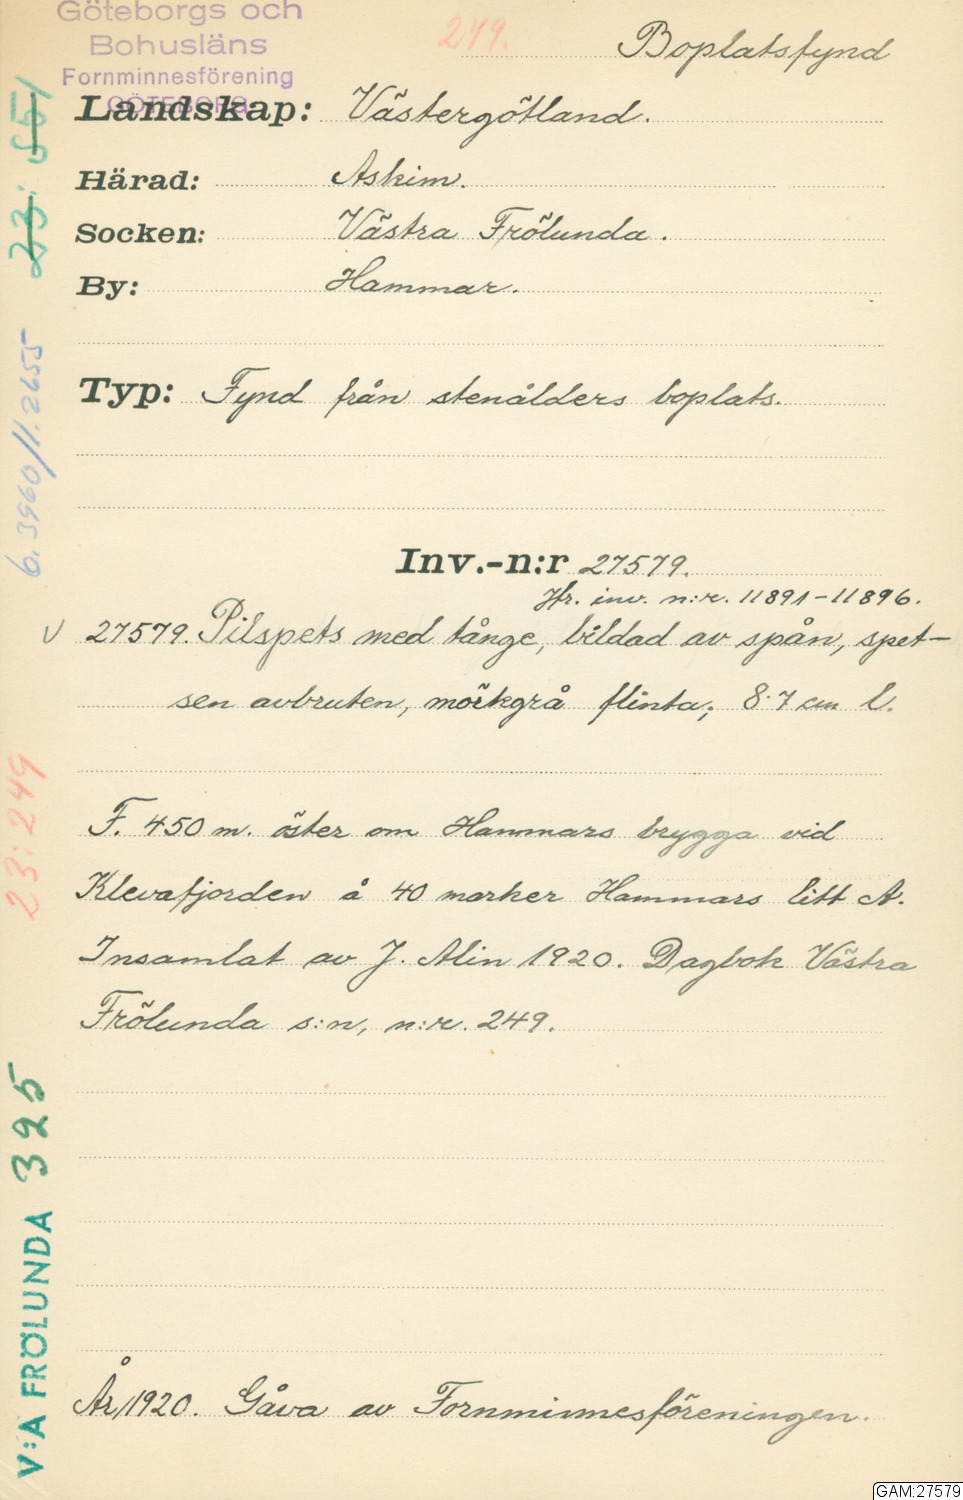 Göteborgs och
Bohusläns
Fornminnesförening
GÖTEBORG
249.
Boplatsfynd
Landskap: Västergötland.
Härad: Askim.
Socken: Västra Frölunda.
By: Hammar.
Typ: Fynd från stenålders boplats.
Inv.-n:r 27579.
Jfr. inv. n:r. 11891-11896.
V 27579. Pilspets med tånge, bildad av spån, spet-
sen avbruten, mörkgrå flinta; 8.7 cm l.
F. 450 m. öster om Hammars brygga vid
Klevafjorden å 40 marker Hammars litt A.
Insamlat av J. Alin 1920. Dagbok Västra
Frölunda s:n, n:r. 249.
År 1920. Gåva av Fornminnesföreningen.
23: 551
6.3960/1.2655
23:249
V:A FRÖLUNDA 325
GAM:27579